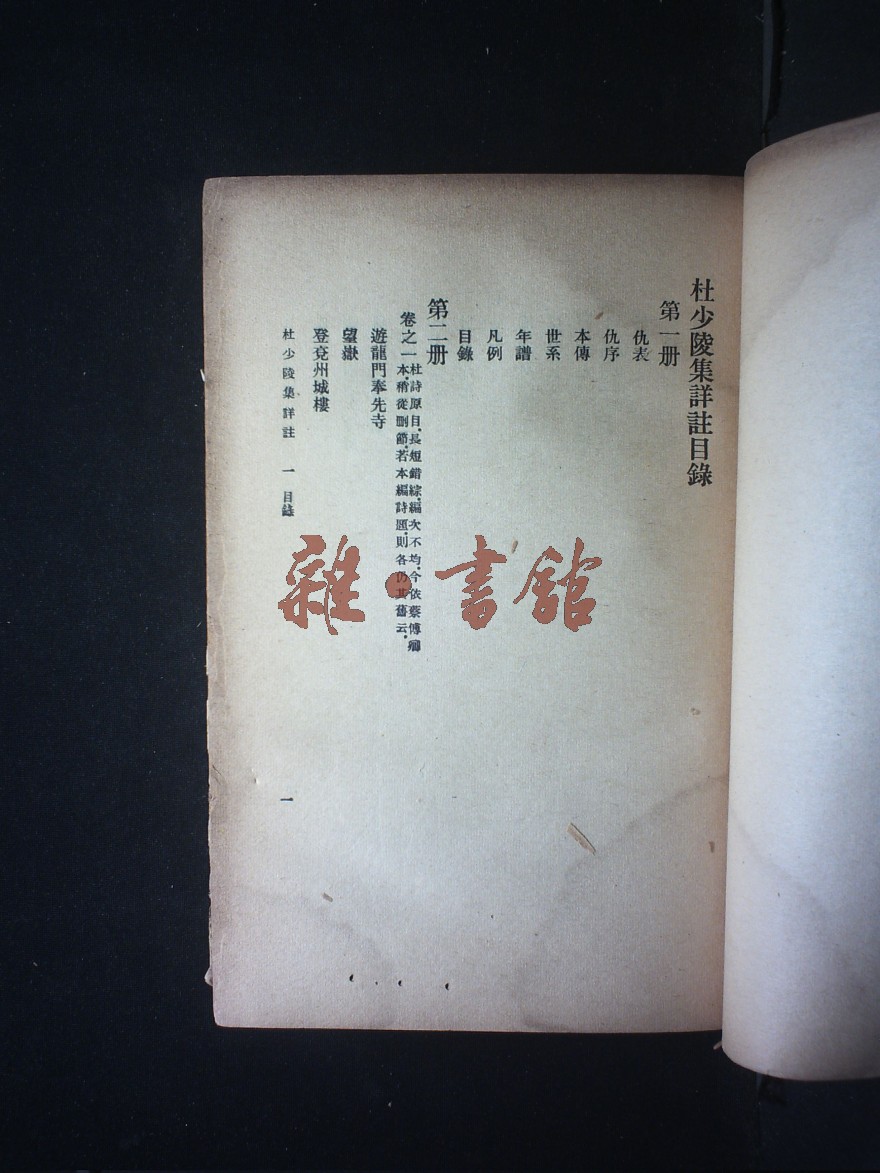 杜少陵集詳註目錄
第一册
仇表
仇序
本傳
世系
年譜
凡例
目錄
第二册
卷之一
杜詩原目，長短錯綜，編次不均，今依蔡傅卿
本，稍從刪節，若本編詩題，則各仍其舊云。
遊龍門奉先寺
望嶽
登兗州城樓
杜少陵集詳註 一 目錄
一
雜·書館